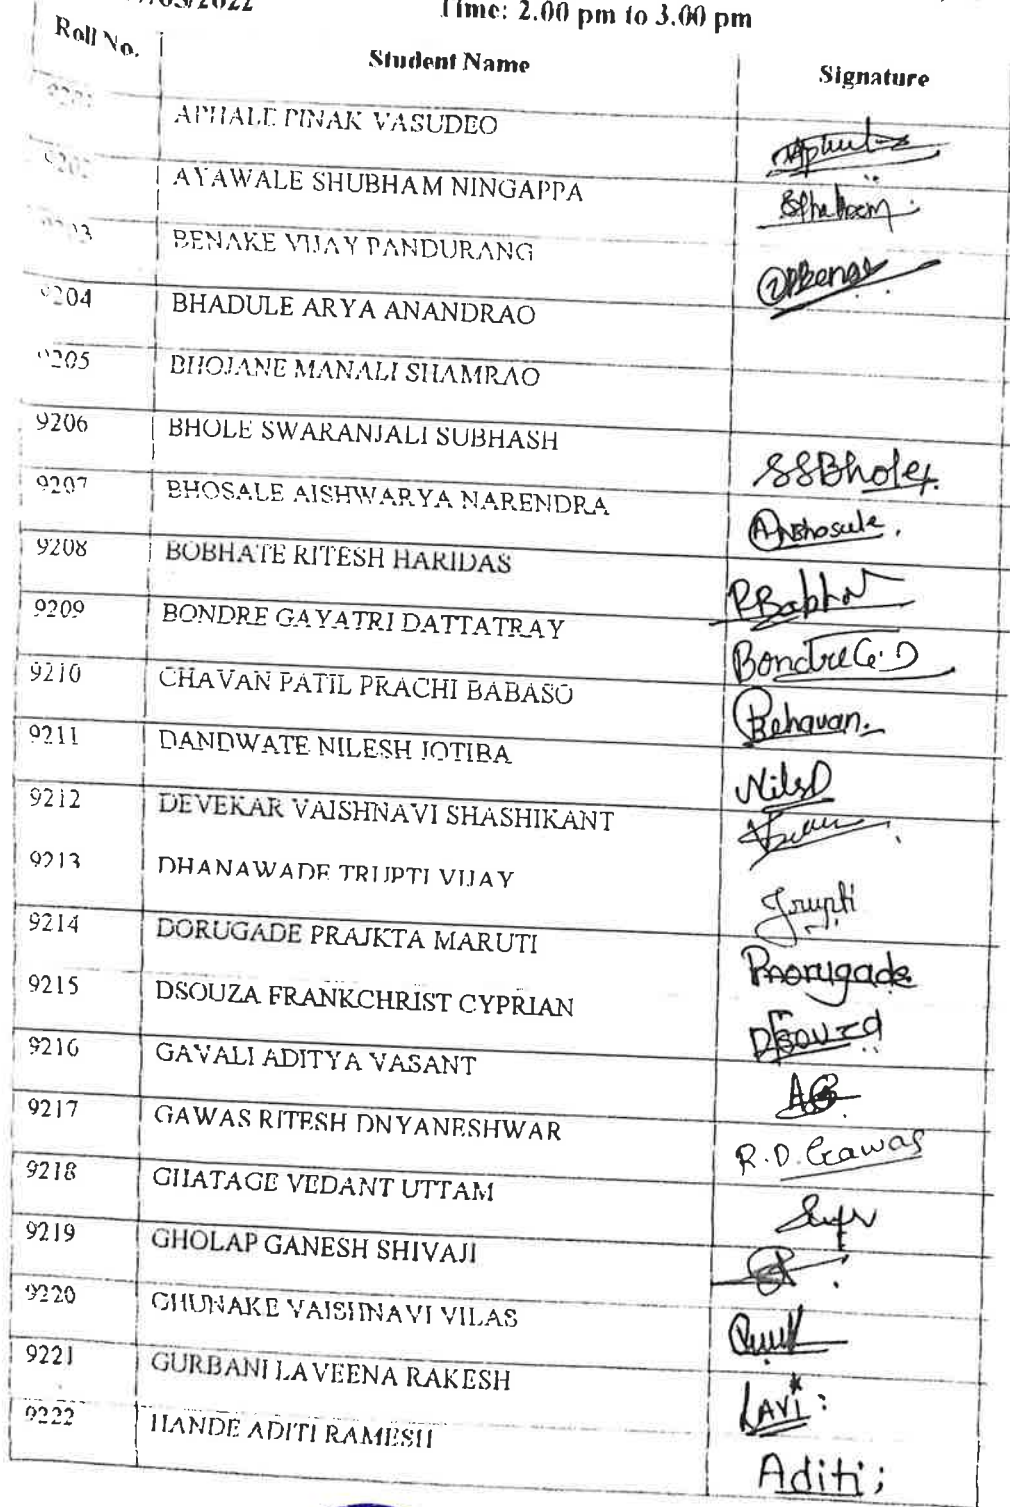 /03/2022 Time: 2.00 pm to 3.00 pm
Roll No. Student Name Signature
9201 APHALE PINAK VASUDEO
9202 AYAWALE SHUBHAM NINGAPPA
9203 BENAKE VIJAY PANDURANG
9204 BHADULE ARYA ANANDRAO
9205 BHOJANE MANALI SHAMRAO
9206 BHOLE SWARANJALI SUBHASH SSBhole
9207 BHOSALE AISHWARYA NARENDRA ANBhosale.
9208 BOBHATE RITESH HARIDAS
9209 BONDRE GAYATRI DATTATRAY Bondre G.D
9210 CHAVAN PATIL PRACHI BABASO
9211 DANDWATE NILESH JOTIBA
9212 DEVEKAR VAISHNAVI SHASHIKANT
9213 DHANAWADE TRUPTI VIJAY Trupti
9214 DORUGADE PRAJKTA MARUTI
9215 DSOUZA FRANKCHRIST CYPRIAN
9216 GAVALI ADITYA VASANT
9217 GAWAS RITESH DNYANESHWAR R.D.Gawas
9218 GHATAGE VEDANT UTTAM
9219 GHOLAP GANESH SHIVAJI
9220 GHUNAKE VAISHNAVI VILAS
9221 GURBANI LAVEENA RAKESH LAVI:
9222 HANDE ADITI RAMESH Aditi;